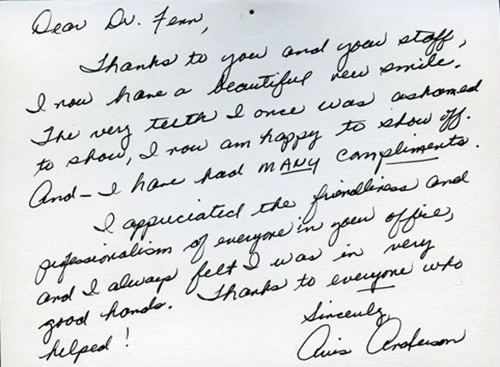 Dear Dr. Fenn,
Thanks to you and your staff,
I now have a beautiful new smile.
The very teeth I once was ashamed
to show, I now am happy to show off.
And - I have had MANY compliments.
I appreciated the friendliness and
professionalism of everyone in your office,
and I always felt I was in very
good hands. Thanks to everyone who
helped!
Sincerely,
Avis Anderson